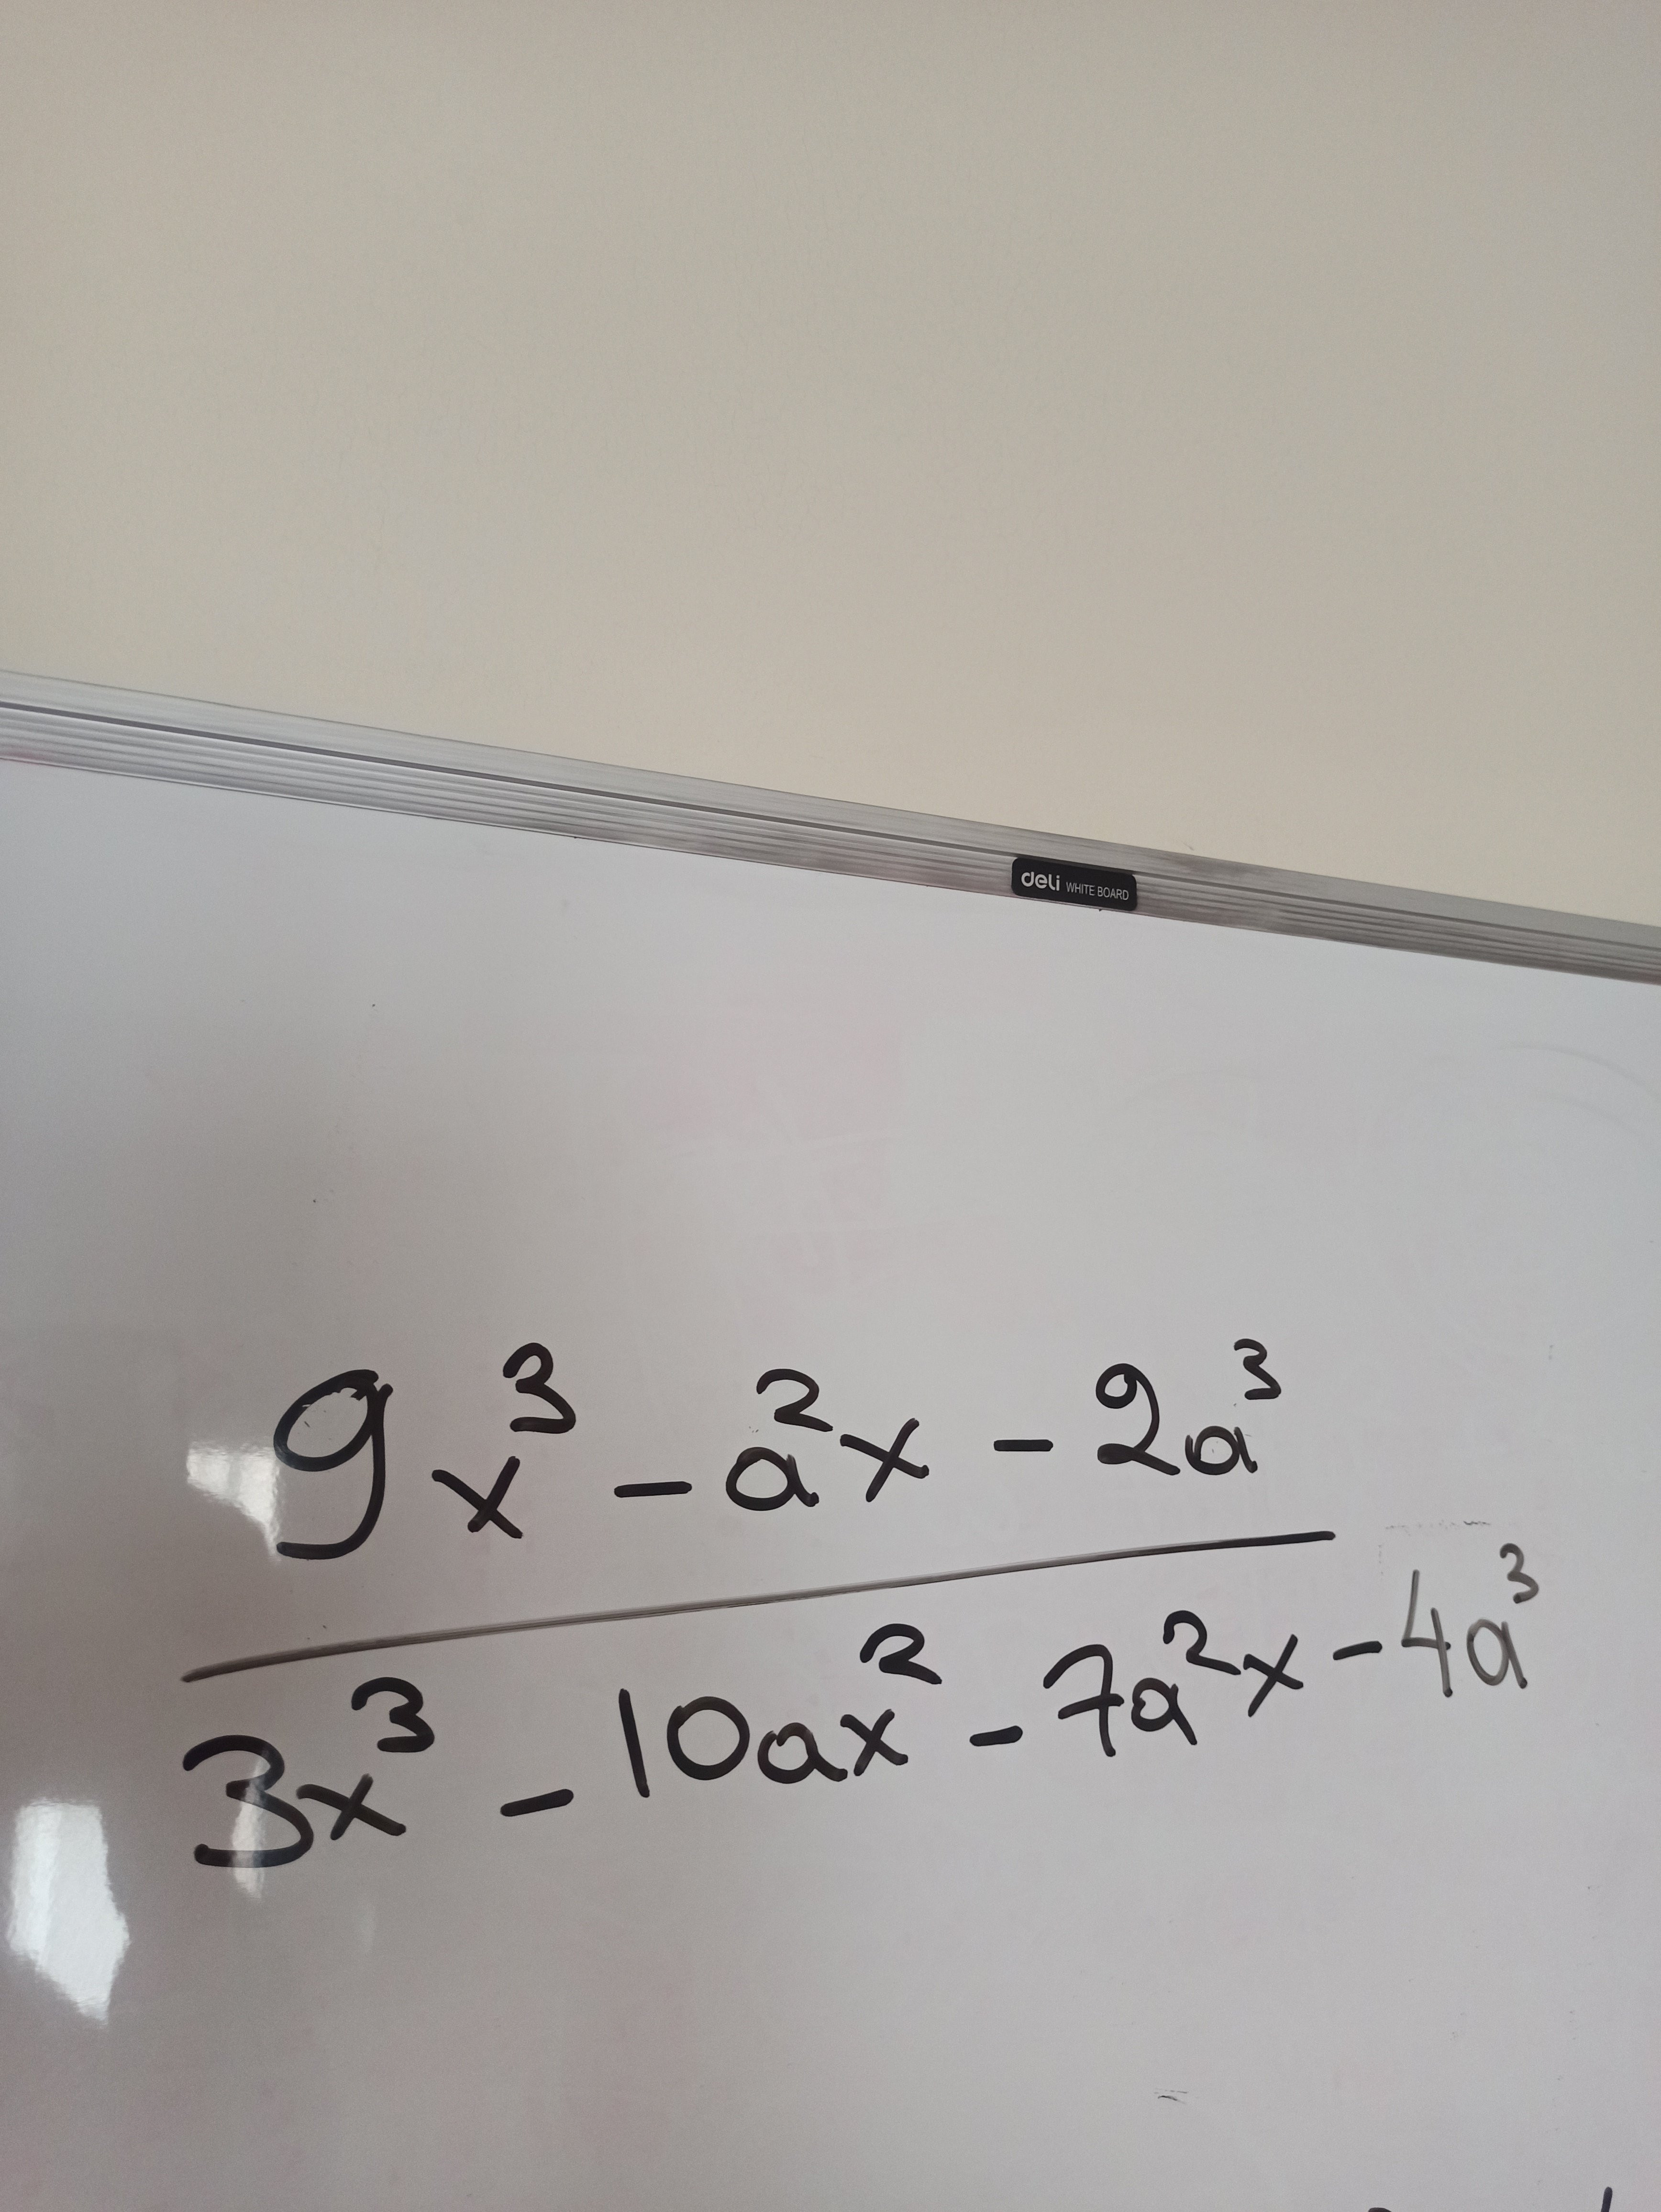 deli WHITE BOARD
9x³ - a²x - 2a³
3x³ - 10ax² - 7a²x - 4a³